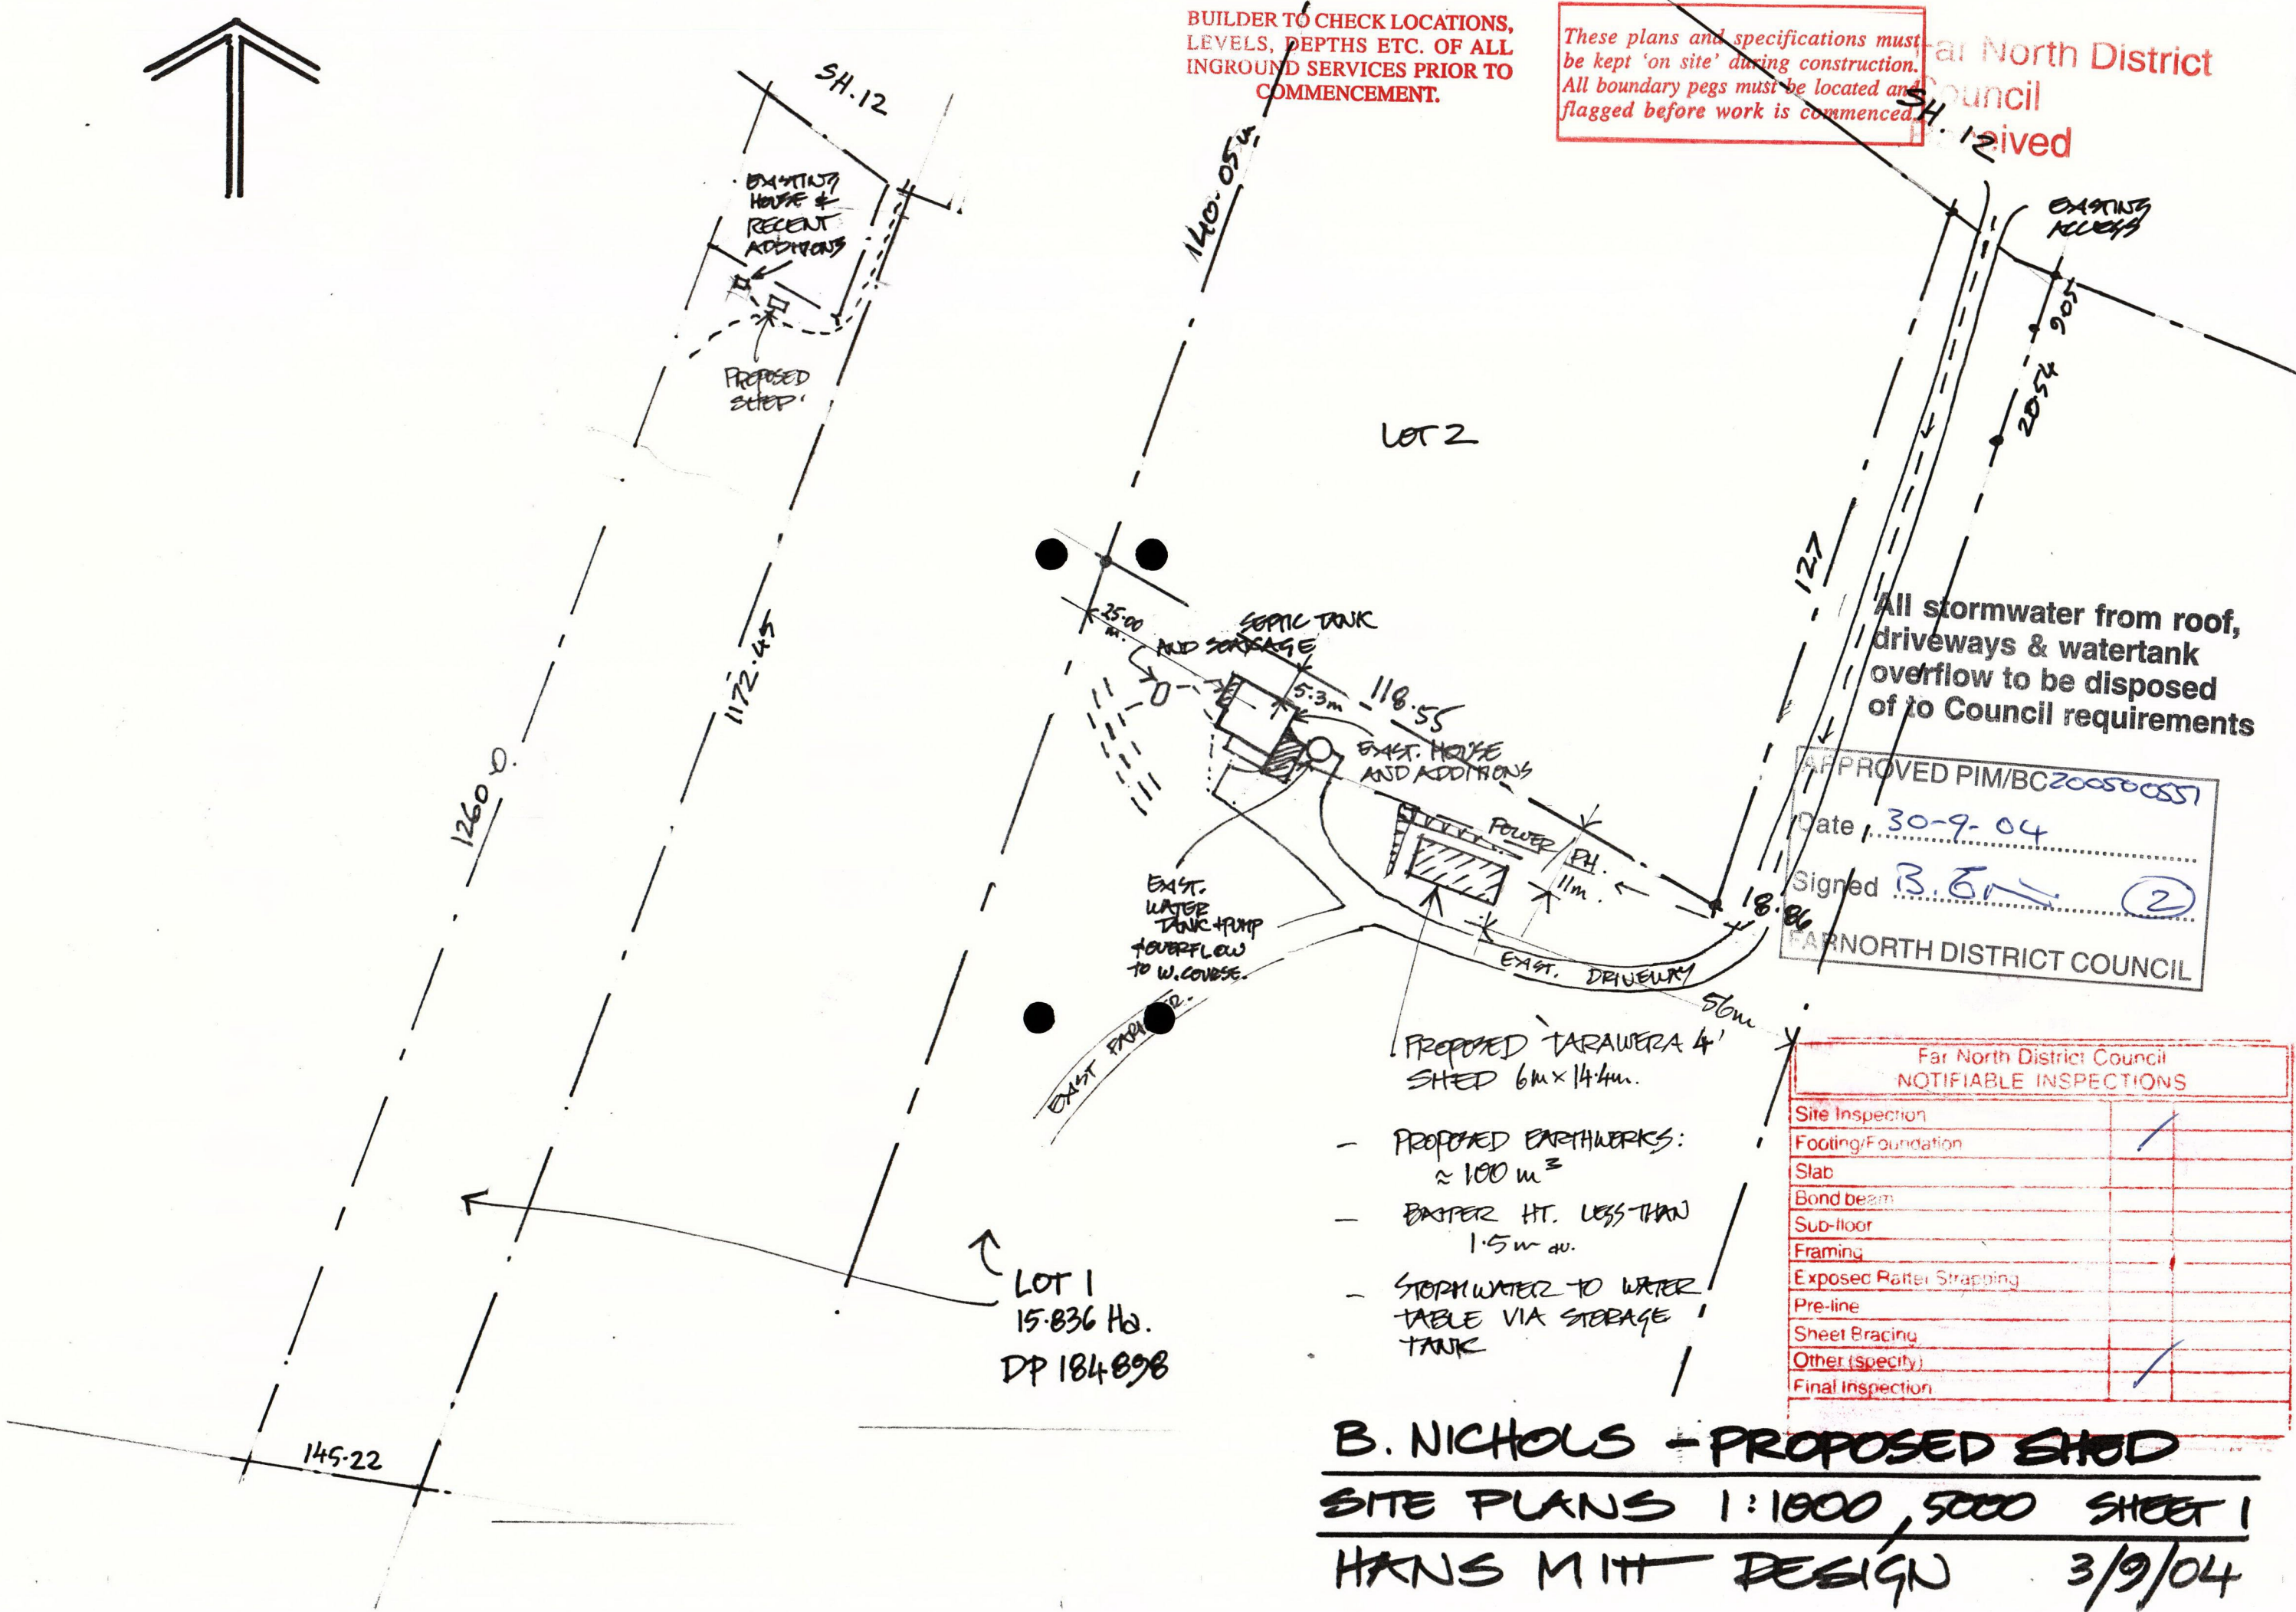 BUILDER TO CHECK LOCATIONS,
LEVELS, DEPTHS ETC. OF ALL
INGROUND SERVICES PRIOR TO
COMMENCEMENT.
These plans and specifications must
be kept 'on site' during construction.
All boundary pegs must be located and
flagged before work is commenced.
Far North District
Council
Received
SH.12
SH.12
EXISTING
HOUSE &
RECENT
ADDITIONS
PROPOSED
SHED
140.05
EXISTING
ACCESS
9.05
20.54
LOT 2
127
1172.45
1260.0
145.22
25.00
m.
SEPTIC TANK
AND SOAKAGE
5.3m
118.55
EXIST. HOUSE
AND ADDITIONS
POWER
PH.
11m.
18.86
EXIST. DRIVEWAY
56m
EXIST.
WATER
TANK + PUMP
& OVERFLOW
TO W. COURSE.
EXIST
All stormwater from roof,
driveways & watertank
overflow to be disposed
of to Council requirements
APPROVED PIM/BC 200500551
Date 30-9-04
Signed B. 2
FAR NORTH DISTRICT COUNCIL
PROPOSED 'TARAWERA 4'
SHED 6m x 14.4m.
- PROPOSED EARTHWORKS:
≈ 100 m³
- BATTER HT. LESS THAN
1.5m av.
- STORMWATER TO WATER
TABLE VIA STORAGE
TANK
LOT 1
15.836 Ha.
DP 184898
Far North District Council
NOTIFIABLE INSPECTIONS
Site Inspection
Footing/Foundation
Slab
Bond beam
Sub-floor
Framing
Exposed Rafter Strapping
Pre-line
Sheet Bracing
Other (specify)
Final Inspection
B. NICHOLS - PROPOSED SHED
SITE PLANS 1:1000, 5000 SHEET 1
HANS MITT DESIGN 3/9/04